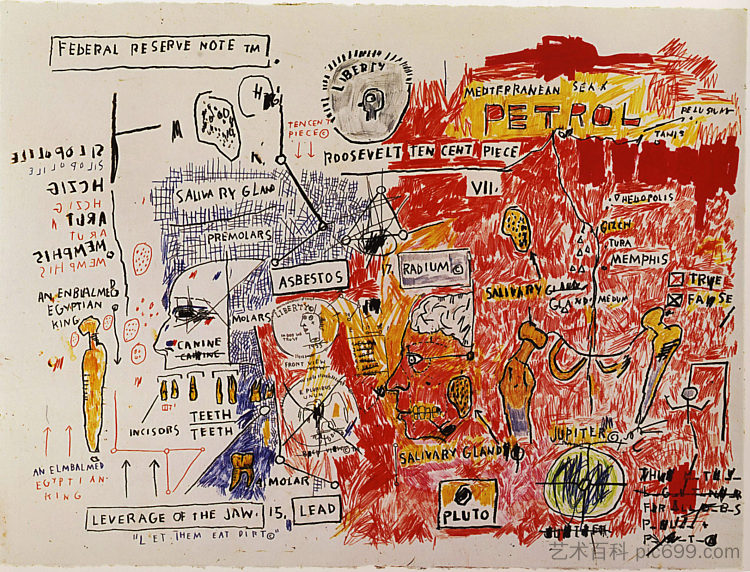 FEDERAL RESERVE NOTE TM.
LIBERTY
TEN CENT
PIECE©
ROOSEVELT TEN CENT PIECE
VII.
MEDTERRANEAN SEA
PETROL
PELUSIUM
TANIS
HELIOPOLIS
GIZEH
TURA
MEMPHIS
MEDUM
TRUE
FALSE
SALIVARY GLAND
PREMOLARS
ASBESTOS
RADIUM©
SALIVARY GLAND
GLANDS
MEMPHIS
MEMPHIS
AN ENBIALMED
EGYPTIAN
KING
MOLARS
LIBERTY
FRONT VIEW
PLURIBUS
UNUM
CANINE
CANINE
INCISORS
TEETH
TEETH
MOLAR
SALIVARY GLAND
JUPITER©
AN ELMBALMED
EGYPTIAN-
KING
LEVERAGE OF THE JAW. 15,
LEAD
PLUTO
"LET THEM EAT DIRT©"
艺术百科 pic699.com